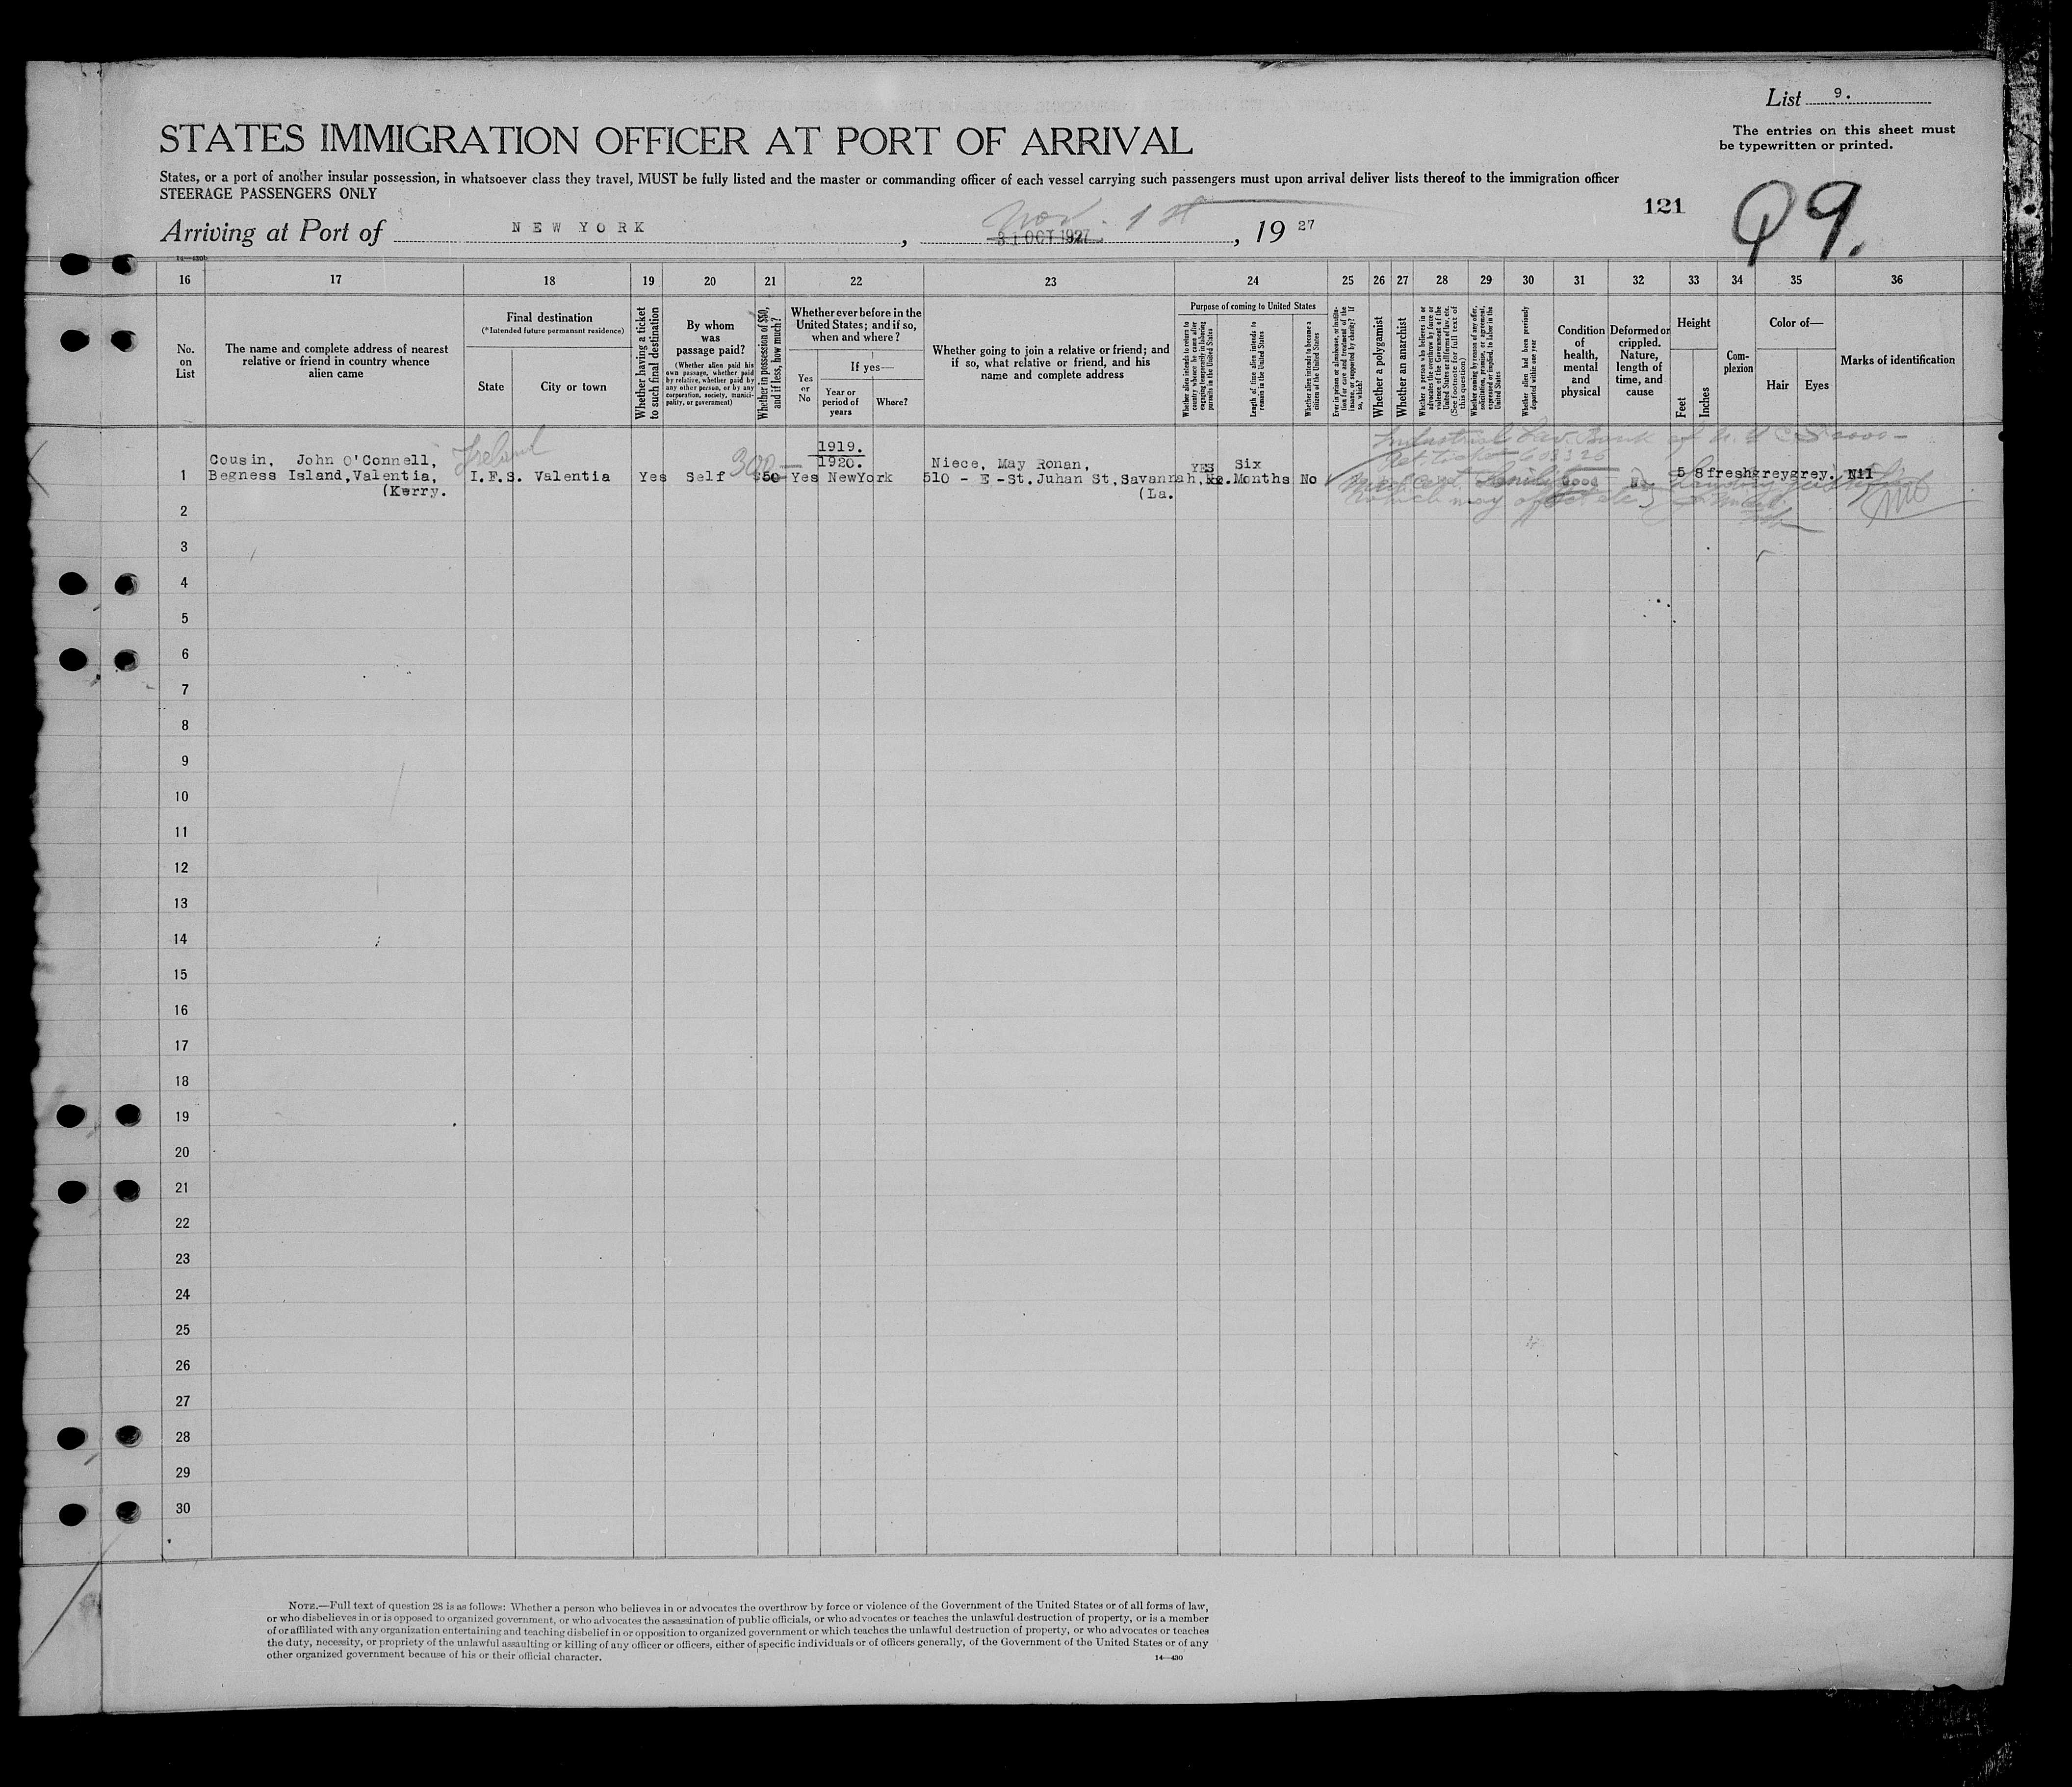 List 9.
The entries on this sheet must
be typewritten or printed.
STATES IMMIGRATION OFFICER AT PORT OF ARRIVAL
States, or a port of another insular possession, in whatsoever class they travel, MUST be fully listed and the master or commanding officer of each vessel carrying such passengers must upon arrival deliver lists thereof to the immigration officer
STEERAGE PASSENGERS ONLY
121
99.
Arriving at Port of NEW YORK, Nov. 1st 31 OCT 1927, 1927
14—430b
16 17 18 19 20 21 22 23 24 25 26 27 28 29 30 31 32 33 34 35 36
No.
on
List
The name and complete address of nearest
relative or friend in country whence
alien came
Final destination
(*Intended future permanent residence)
State
City or town
Whether having a ticket
to such final destination
By whom
was
passage paid?
(Whether alien paid his
own passage, whether paid
by relative, whether paid by
any other person, or by any
corporation, society, munici-
pality, or government)
Whether in possession of $50,
and if less, how much?
Whether ever before in the
United States; and if so,
when and where?
Yes
or
No
If yes—
Year or
period of
years
Where?
Whether going to join a relative or friend; and
if so, what relative or friend, and his
name and complete address
Purpose of coming to United States
Whether alien intends to return to
country whence he came after
engaging temporarily in laboring
pursuits in the United States
Length of time alien intends to
remain in the United States
Whether alien intends to become a
citizen of the United States
Ever in prison or almshouse, or institu-
tion for care and treatment of the
insane, or supported by charity? If
so, which?
Whether a polygamist
Whether an anarchist
Whether a person who believes in or
advocates the overthrow by force or
violence of the Government of the
United States or all forms of law, etc.
(See footnote for full text of
this question)
Whether coming by reason of any offer,
solicitation, promise, or agreement,
expressed or implied, to labor in the
United States
Whether alien had been previously
deported within one year
Condition
of
health,
mental
and
physical
Deformed or
crippled.
Nature,
length of
time, and
cause
Height
Feet
Inches
Com-
plexion
Color of—
Hair
Eyes
Marks of identification
Ireland
300—
1919.
1920.
Cousin, John O'Connell,
Niece, May Ronan,
YES
Six
1 Begness Island, Valentia, I.F.S. Valentia Yes Self $50 Yes NewYork 510 - E -St.Juhan St, Savannah, Months No Good No. 5 8 fresh grey grey. Nil
(Kerry.
(La.
2
3
4
5
6
7
8
9
10
11
12
13
14
15
16
17
18
19
20
21
22
23
24
25
26
27
28
29
30
NOTE.—Full text of question 28 is as follows: Whether a person who believes in or advocates the overthrow by force or violence of the Government of the United States or of all forms of law,
or who disbelieves in or is opposed to organized government, or who advocates the assassination of public officials, or who advocates or teaches the unlawful destruction of property, or is a member
of or affiliated with any organization entertaining and teaching disbelief in or opposition to organized government or which teaches the unlawful destruction of property, or who advocates or teaches
the duty, necessity, or propriety of the unlawful assaulting or killing of any officer or officers, either of specific individuals or of officers generally, of the Government of the United States or of any
other organized government because of his or their official character.
14—430